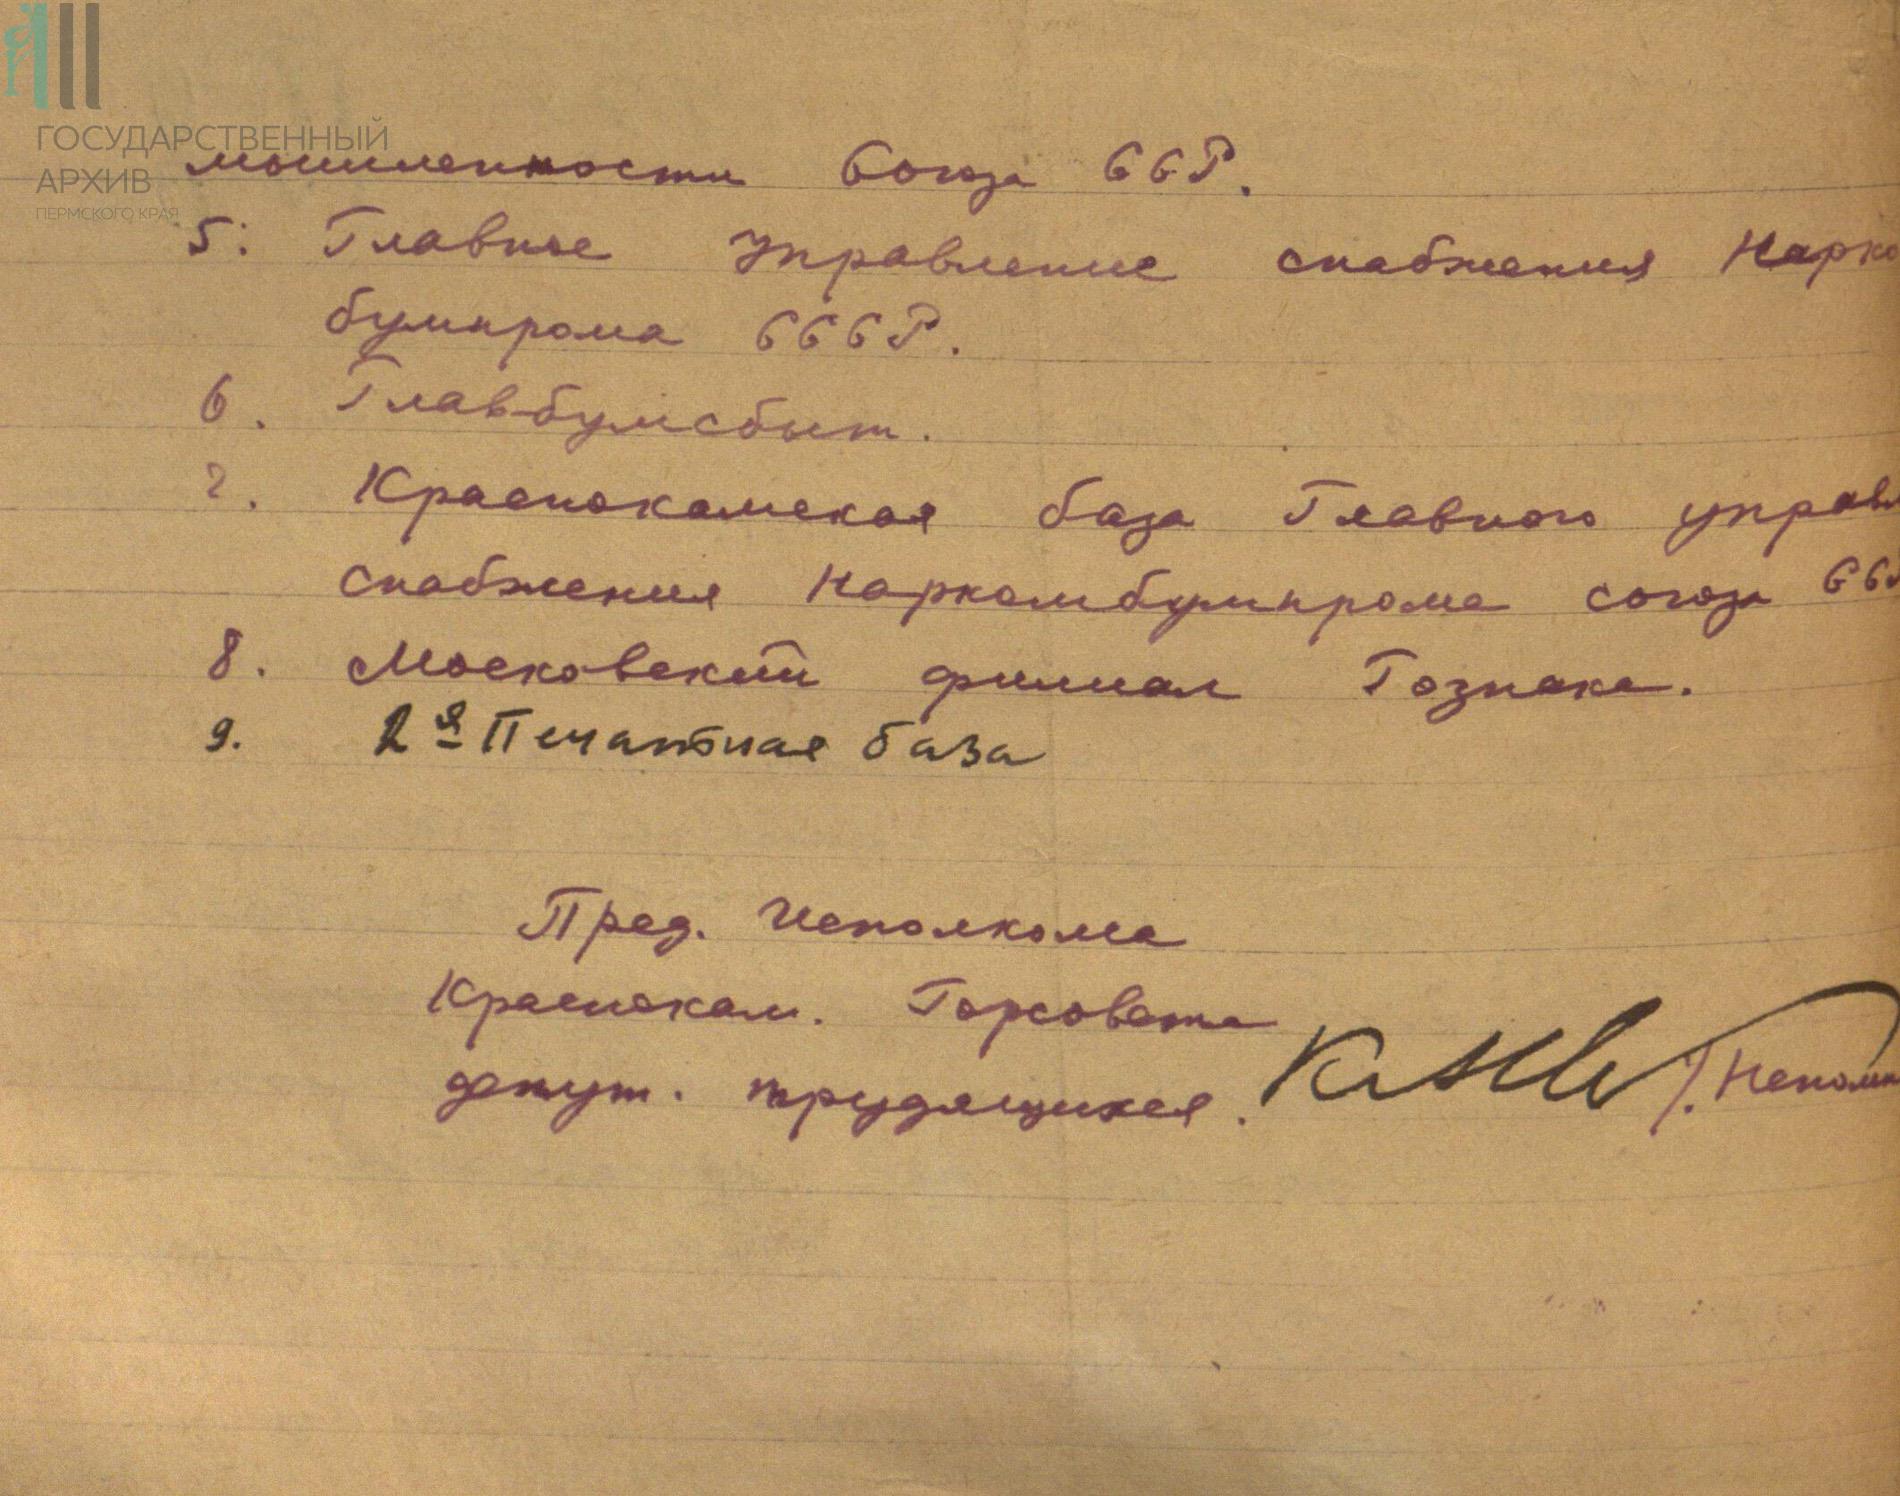 ГОСУДАРСТВЕННЫЙ
АРХИВ
ПЕРМСКОГО КРАЯ
мышленности Союза ССР.
5. Главное Управление снабжения Нарко
бумпрома СССР.
6. Главбумсбыт.
7. Краснокамская база Главного управл
снабжения Наркомбумпрома союза ССР
8. Московский филиал Гознака.
9. 2я Печатная база
Пред. Исполкома
Краснокам. Горсовета
депут. трудящихся. /. Непомн